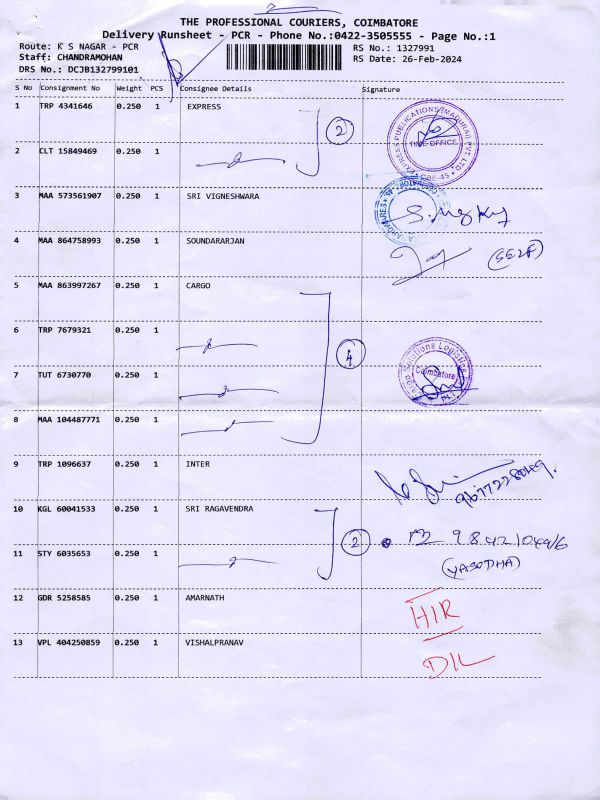 THE PROFESSIONAL COURIERS, COIMBATORE
Delivery Runsheet - PCR - Phone No.:0422-3505555 - Page No.:1
Route: K S NAGAR - PCR
Staff: CHANDRAMOHAN
DRS No.: DCJB132799101
RS No.: 1327991
RS Date: 26-Feb-2024
S No Consignment No Weight PCS Consignee Details Signature
1 TRP 4341646 0.250 1 EXPRESS
2
EXPRESS PUBLICATIONS (MADURAI) PVT LTD
TIME OFFICE
CBE-45
2 CLT 15849469 0.250 1
3 MAA 573561907 0.250 1 SRI VIGNESHWARA
4 MAA 864758993 0.250 1 SOUNDARARJAN
(SELF)
5 MAA 863997267 0.250 1 CARGO
6 TRP 7679321 0.250 1
4
Solutions Logistics
Coimbatore
7 TUT 6730770 0.250 1
8 MAA 104487771 0.250 1
9 TRP 1096637 0.250 1 INTER
10 KGL 60041533 0.250 1 SRI RAGAVENDRA
2
(YASODHA)
11 STY 6035653 0.250 1
12 GDR 5258585 0.250 1 AMARNATH
HIR
13 VPL 404250859 0.250 1 VISHALPRANAV
DIL